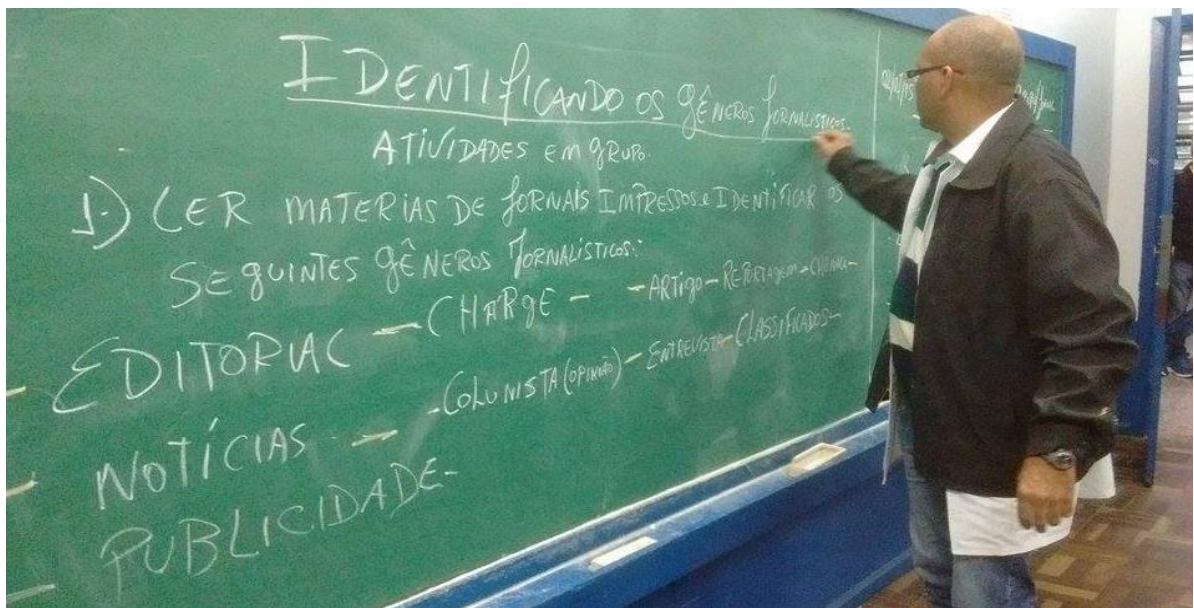 IDENTIFICANDO OS GÊNEROS JORNALÍSTICOS.
ATIVIDADES EM GRUPO.
1-) LER MATERIAS DE JORNAIS IMPRESSOS e IDENTIFICAR OS
SEGUINTES GÊNEROS JORNALÍSTICOS:
- EDITORIAL - CHARGE - - ARTIGO - REPORTAGEM -
- NOTÍCIAS - - COLUNISTA (OPINIÃO) - ENTREVISTA - CLASSIFICADOS -
- PUBLICIDADE -